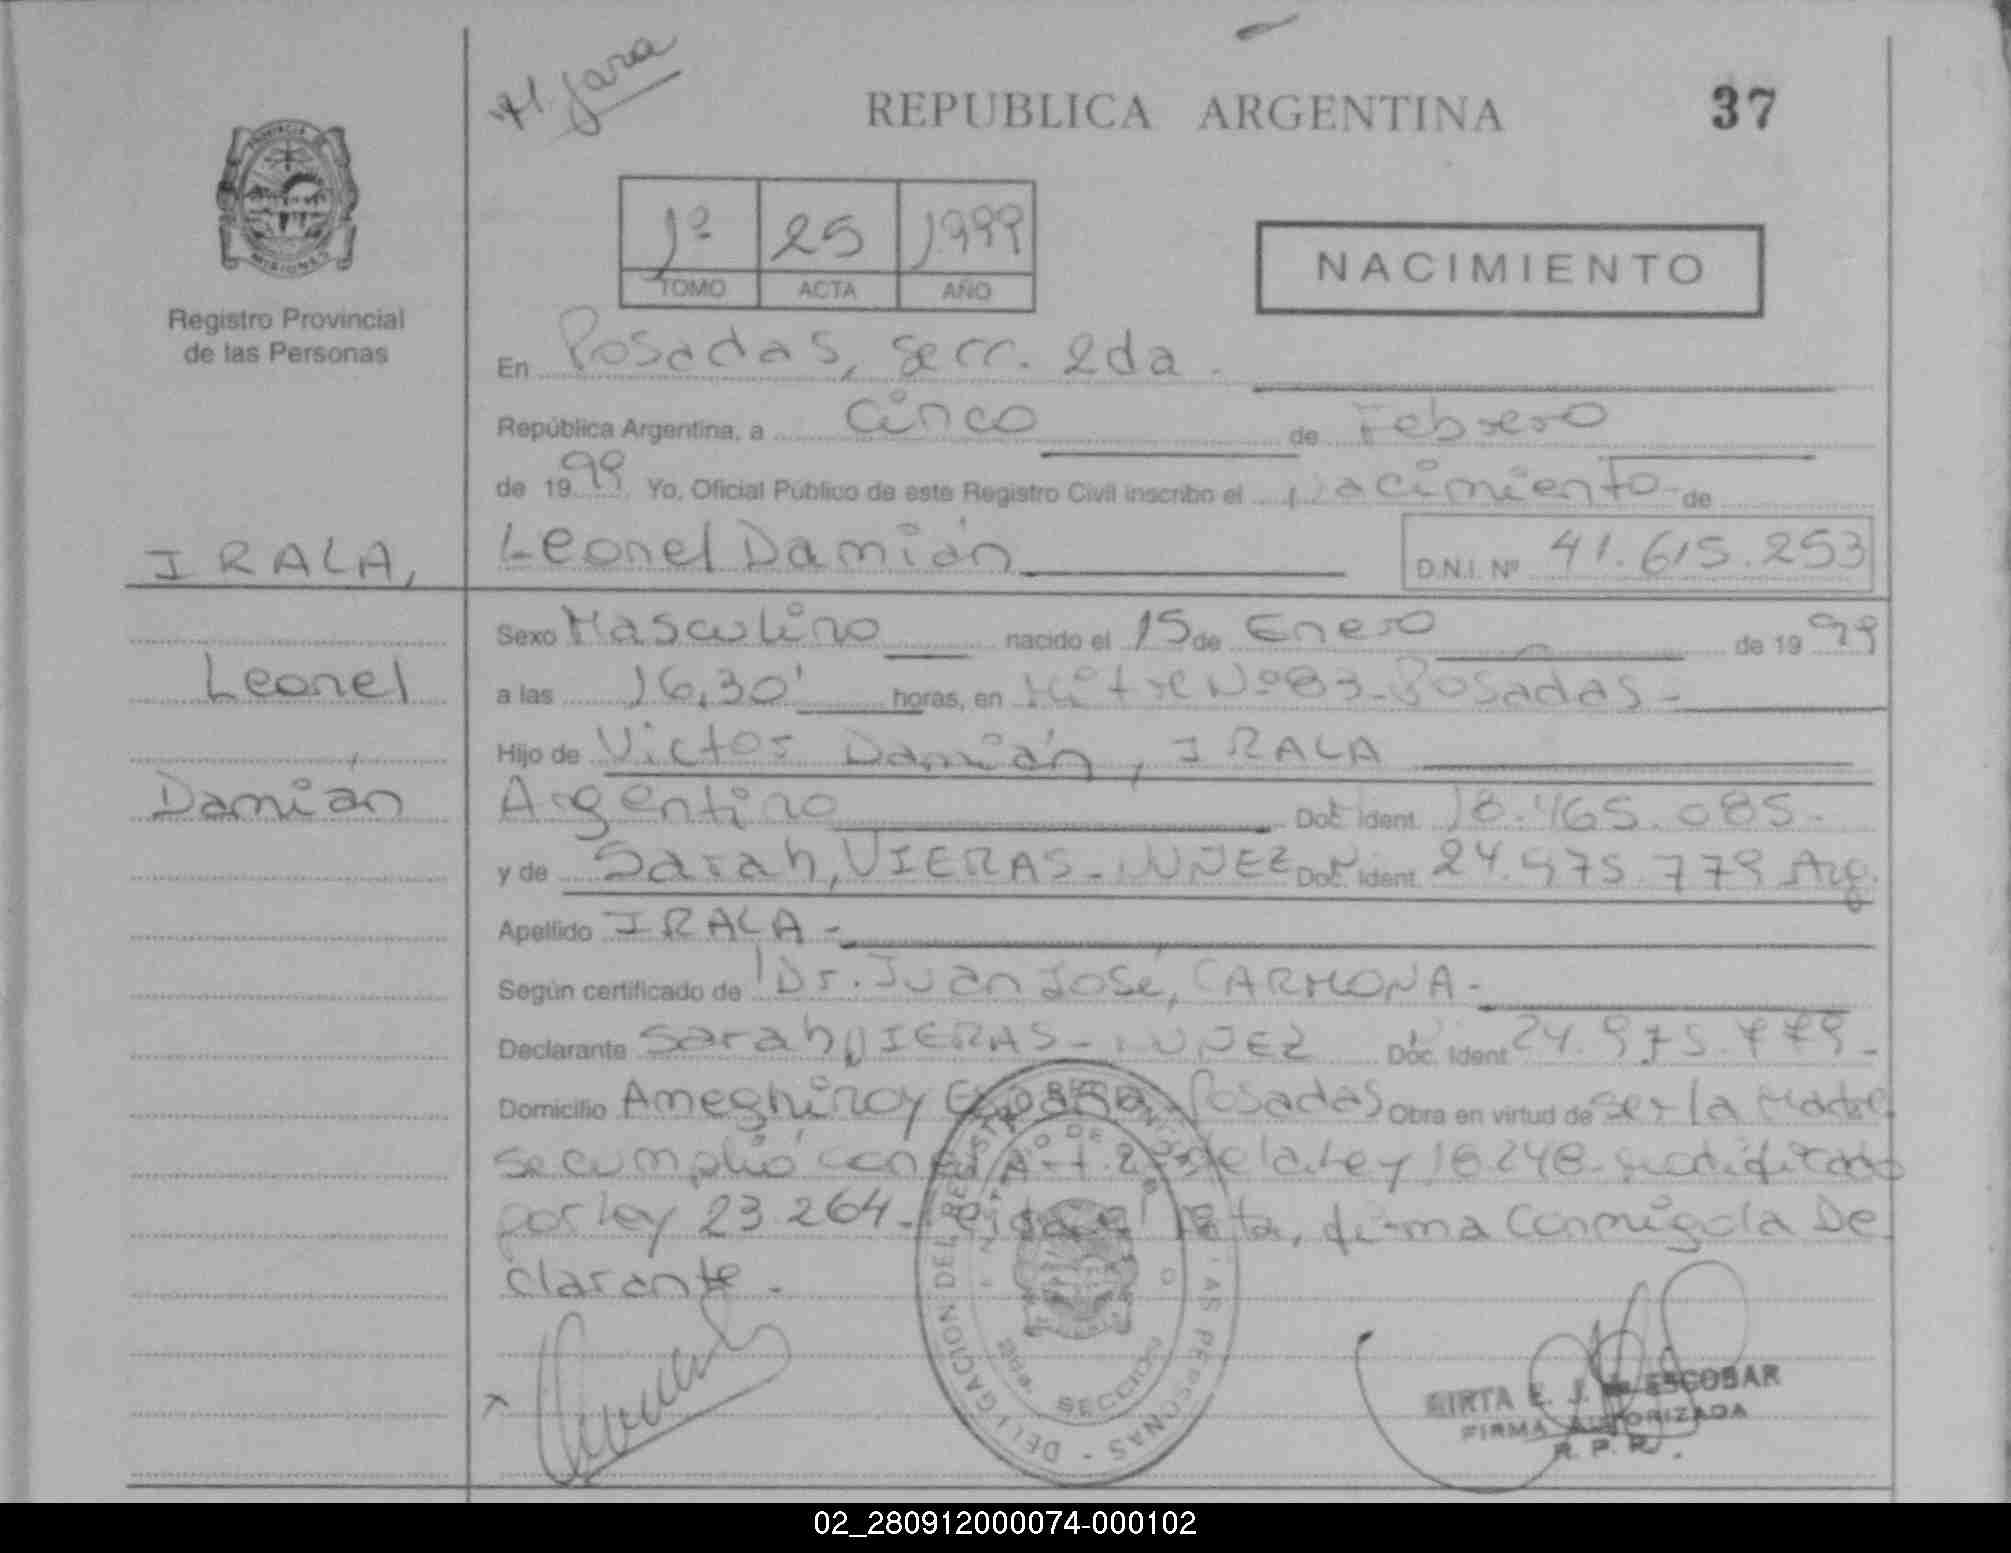 Al. Jara
REPUBLICA ARGENTINA
37
PROVINCIA
MISIONES
Registro Provincial
de las Personas
1º 25 1999
TOMO ACTA AÑO
NACIMIENTO
En Posadas, secc. 2da.
República Argentina, a Cinco de Febrero
de 1999 Yo, Oficial Público de este Registro Civil inscribo el Nacimiento de
IRALA, Leonel Damián D.N.I. Nº 41.615.253
Sexo Masculino nacido el 15 de Enero de 1999
Leonel a las 16,30' horas, en Mitre Nº 83 - Posadas -
Hijo de Victor Damián, IRALA
Damián Argentino Doc. Ident. 18.465.085.
y de Sarah, VIERAS - NUÑEZ Doc. Ident. 24.975.779 Arg.
Apellido IRALA -
Según certificado de Dr. Juan José, CARMONA -
Declarante Sarah VIERAS - NUÑEZ Doc. Ident. 24.975.779 -
Domicilio Ameghino y Posadas Obra en virtud de ser la Madre
se cumplió con el Art. de la Ley 18248 - modificado
por ley 23.264 - leída el Acta, firma conmigo la De
clarante.
DELEGACION DEL REGISTRO PERSONAS
SECCION
X
MIRTA E. J. DE ESCOBAR
FIRMA AUTORIZADA
R. P. P.
02_280912000074-000102